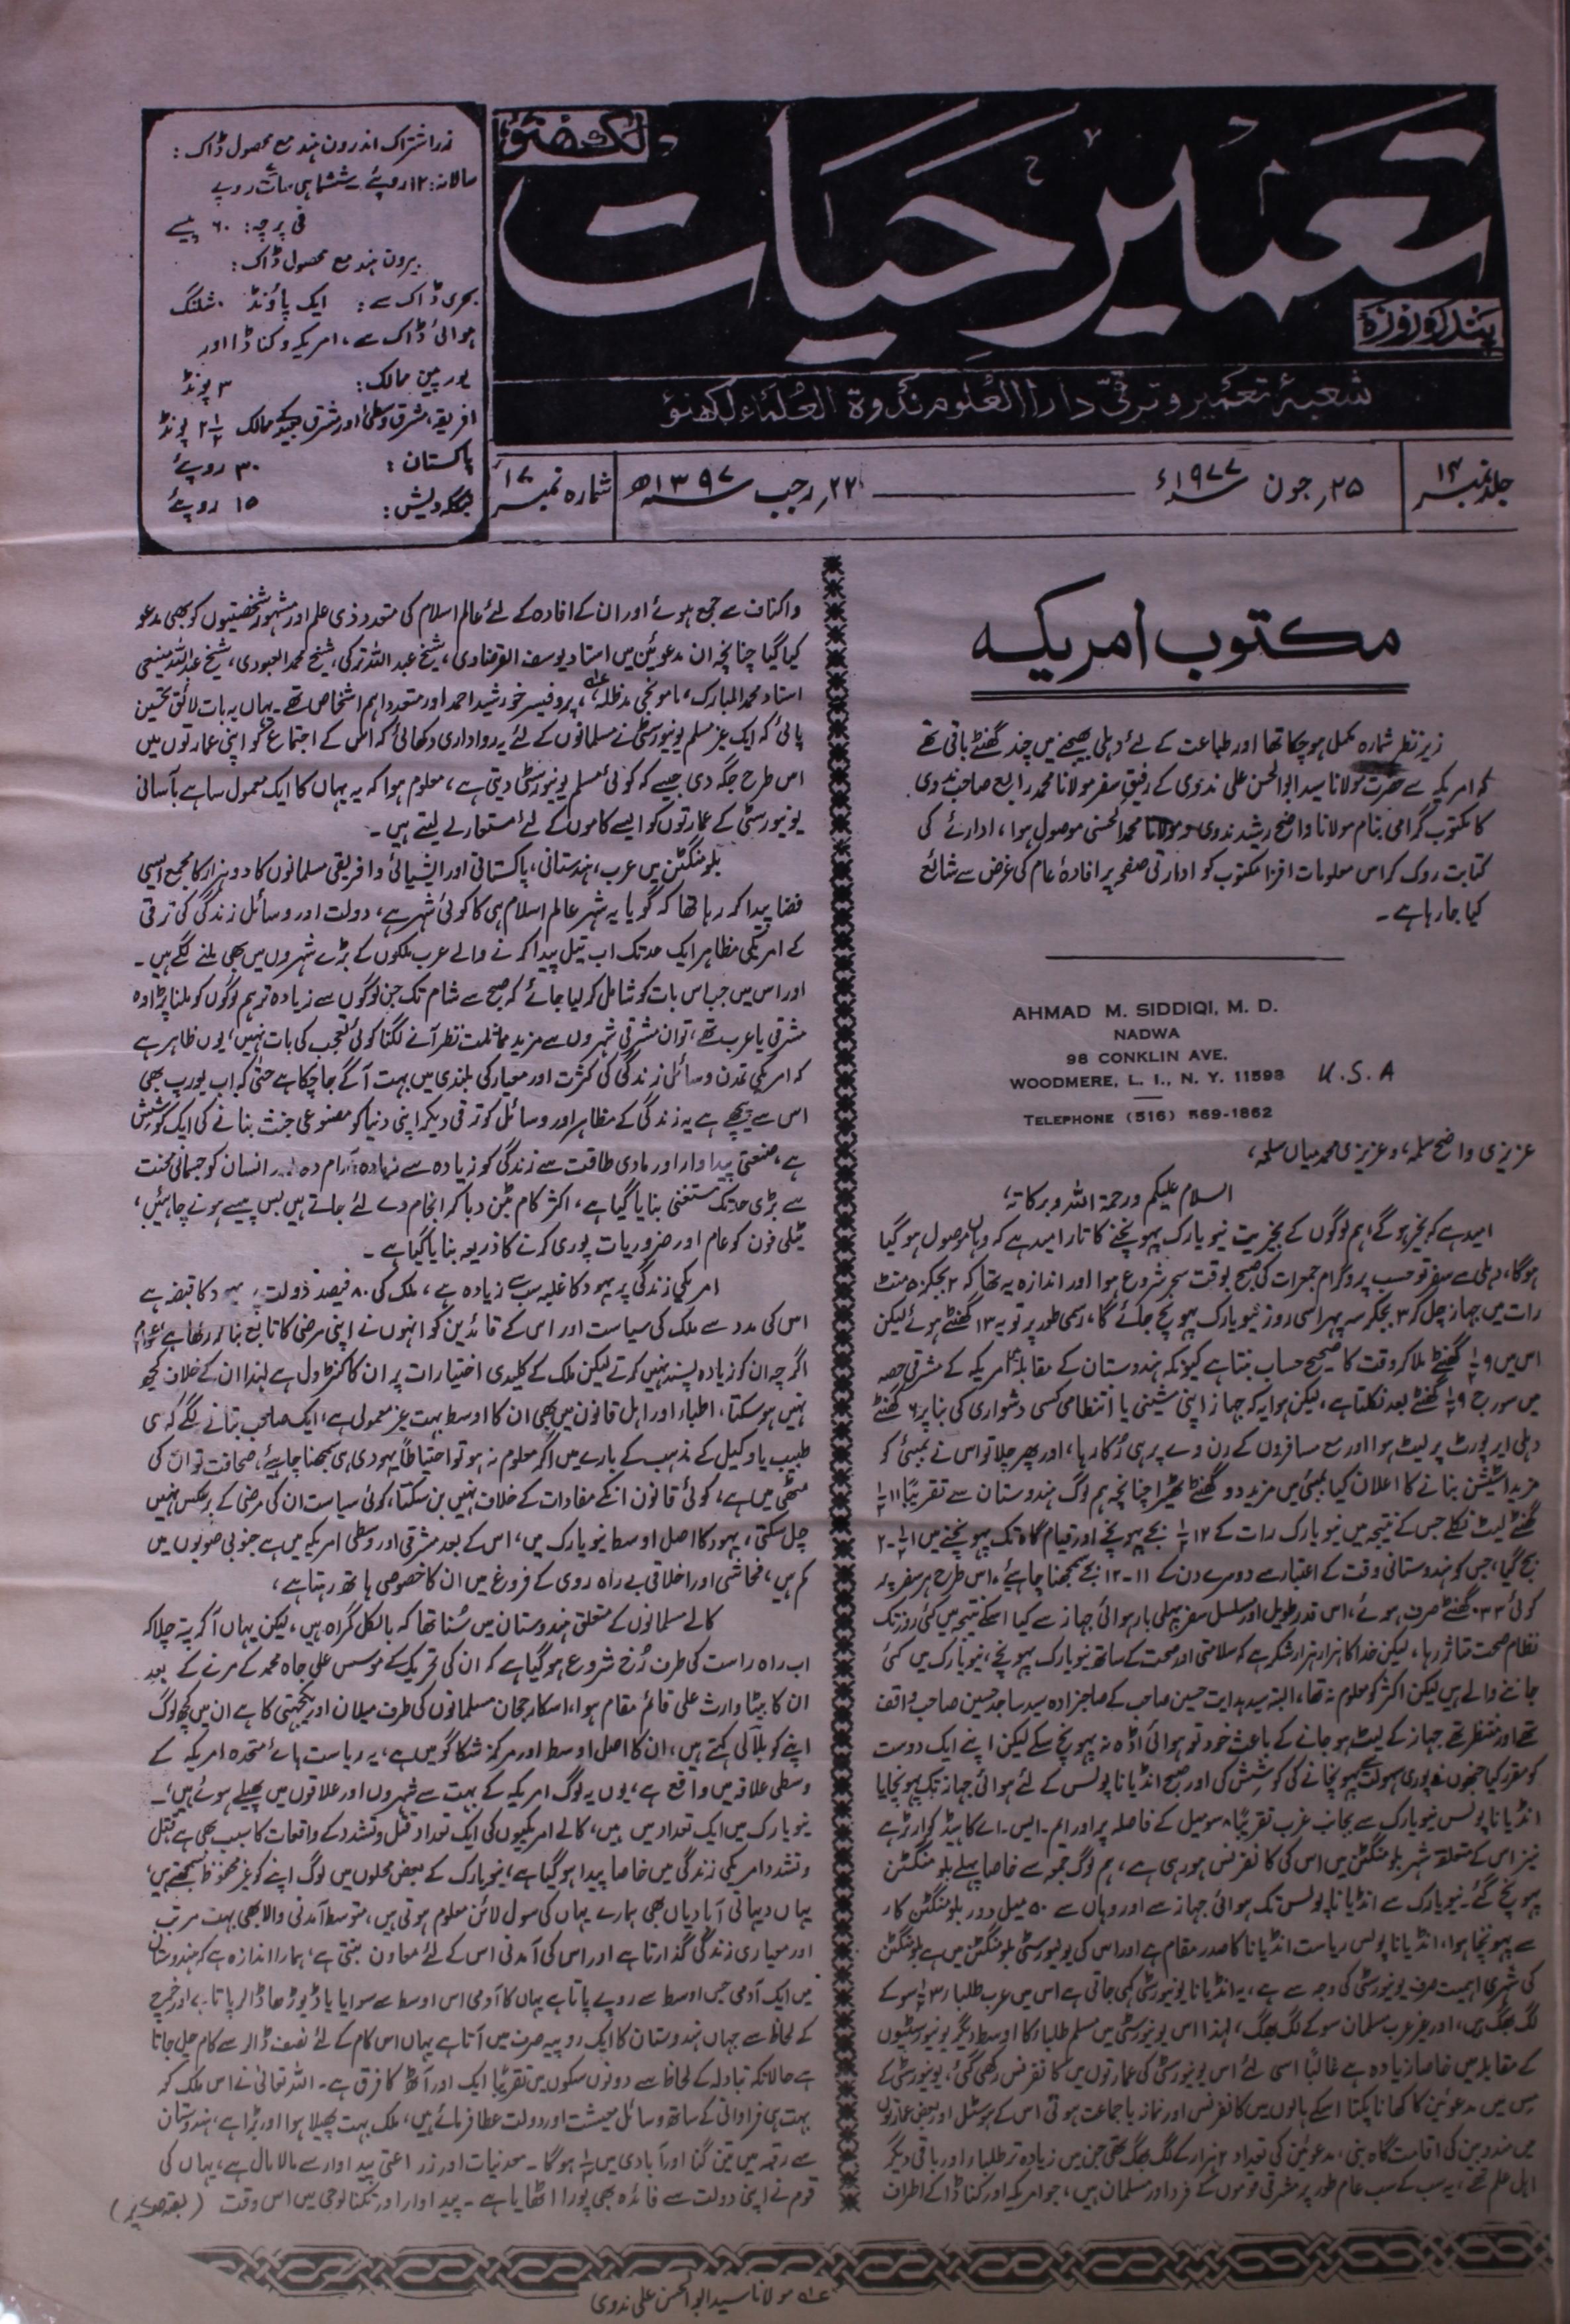 لکھنؤ
تعمیر حیات
پندرہ روزہ
شعبۂ تعمیر و ترقی دارالعلوم ندوۃ العلماء لکھنؤ
زر اشتراک اندرون ہند مع محصول ڈاک:
سالانہ: ۱۲ روپئے ششماہی سات روپے
فی پرچہ: ۶۰ پیسے
بیرون ہند مع محصول ڈاک:
بحری ڈاک سے: ایک پاؤنڈ شلنگ
ہوائی ڈاک سے، امریکہ و کناڈا اور
یورپین ممالک: ۳ پونڈ
افریقہ، مشرق وسطیٰ اور مشرق بعید کے ممالک ۲½ پونڈ
پاکستان: ۳۰ روپئے
بنگلہ دیش: ۱۵ روپئے
جلد نمبر ۱۴
۲۵ر جون ۱۹۷۷ء
۲۲ر رجب ۱۳۹۷ھ
شمارہ نمبر ۱۷
مکتوب امریکہ
زیر نظر شمارہ مکمل ہو چکا تھا اور طباعت کے لئے دہلی بھیجنے میں چند گھنٹے باقی تھے
کہ امریکہ سے حضرت مولانا سید ابوالحسن علی ندوی کے رفیق سفر مولانا محمد رابع صاحب ندوی
کا مکتوب گرامی بنام مولانا واضح رشید ندوی و مولانا محمد الحسنی موصول ہوا، ادارئے کی
کتابت روک کر اس معلومات افزا مکتوب کو ادارتی صفحہ پر افادۂ عام کی غرض سے شائع
کیا جا رہا ہے۔
AHMAD M. SIDDIQI, M. D.
NADWA
98 CONKLIN AVE.
WOODMERE, L. I., N. Y. 11598 U.S.A
TELEPHONE (516) 569-1862
عزیزی واضح سلمہ، و عزیزی محمد میاں سلمہ،
السلام علیکم ورحمۃ اللہ وبرکاتہ،
امید ہے کہ بخیر ہوگے، ہم لوگوں کے بخیریت نیویارک پہونچنے کا تار امید ہے کہ وہاں موصول ہو گیا
ہوگا، دہلی سے سفر تو حسب پروگرام جمعرات کی صبح بوقت سحر شروع ہوا اور اندازہ یہ تھا کہ ۲ بجکر ۵۰ منٹ
رات میں جہاز چل کر ۳ بجکر سہ پہر اسی روز نیویارک پہونچ جائے گا، رسمی طور پر تو یہ ۱۳ گھنٹے ہوئے لیکن
اس میں ۹½ گھنٹے ملا کر وقت کا صحیح حساب بنتا ہے کیونکہ ہندوستان کے مقابلہ امریکہ کے مشرقی حصہ
میں سورج ۹½ گھنٹے بعد نکلتا ہے، لیکن ہوا یہ کہ جہاز اپنی مشینی یا انتظامی کسی دشواری کی بنا پر ۶ گھنٹے
دہلی ایرپورٹ پر لیٹ ہوا اور مع مسافروں کے رن وے پر ہی رُکا رہا، اور پھر چلا تو اس نے بمبئی کو
مزید اسٹیشن بنانے کا اعلان کیا بمبئی میں مزید دو گھنٹے ٹھیرا چنانچہ ہم لوگ ہندوستان سے تقریباً ۱۱½
گھنٹے لیٹ نکلے جس کے نتیجہ میں نیویارک رات کے ۱۲½ بجے پہونچے اور قیام گاہ تک پہونچنے میں ۱½۔۲
بج گیا، جس کو ہندوستانی وقت کے اعتبار سے دوسرے دن کے ۱۱۔۱۲ بجے سمجھنا چاہیئے۔ اس طرح ہر سفر پر
کوئی ۳۳ گھنٹے صرف ہوئے، اس قدر طویل اور مسلسل سفر پہلی بار ہوائی جہاز سے کیا اسکے نتیجہ میں کئی روز تک
نظام صحت متاثر رہا، لیکن خدا کا ہزار ہزار شکر ہے کہ سلامتی اور صحت کے ساتھ نیویارک پہونچے، نیویارک میں کئی
جاننے والے ہیں لیکن اکثر کو معلوم نہ تھا، البتہ سید ہدایت حسین صاحب کے صاحبزادہ سید ساجد حسین صاحب واقف
تھے اور منتظر تھے جہاز کے لیٹ ہو جانے کے باعث خود تو ہوائی اڈہ نہ پہونچ سکے لیکن اپنے ایک دوست
کو مقرر کیا جنہوں نے پوری سہولت پہونچانے کی کوشش کی اور صبح انڈیانا پولس کے لئے ہوائی جہاز تک پہونچایا
انڈیانا پولس نیویارک سے بجانب غرب تقریباً ۸ سو میل کے فاصلہ پر اور ایم۔ایس۔اے کا ہیڈ کوارٹر ہے
نیز اس کے متعلقہ شہر بلومنگٹن میں اس کی کانفرنس ہو رہی ہے، ہم لوگ جمعہ سے خاصا پہلے بلومنگٹن
پہونچ گئے۔ نیویارک سے انڈیانا پولس تک ہوائی جہاز سے اور وہاں سے ۵۰ میل دور بلومنگٹن کار
سے پہونچنا ہوا، انڈیانا پولس ریاست انڈیانا کا صدر مقام ہے اور اس کی یونیورسٹی بلومنگٹن میں ہے بلومنگٹن
کی شہری اہمیت صرف یونیورسٹی کی وجہ سے ہے، یہ انڈیانا یونیورسٹی کہی جاتی ہے اس میں عرب طلباء ۳½ سو کے
لگ بھگ ہیں، اور غیر عرب مسلمان سو کے لگ بھگ، لہذا اس یونیورسٹی میں مسلم طلباء کا اوسط دیگر یونیورسٹیوں
کے مقابلہ میں خاصا زیادہ ہے غالباً اسی لئے اس یونیورسٹی کی عمارتوں میں کانفرنس رکھی گئی، یونیورسٹی کے
میس میں مدعوئین کا کھانا پکتا اسکے ہالوں میں کانفرنس اور نماز باجماعت ہوتی اس کے ہوسٹل اور بعض عمارتوں
میں مندوبین کی اقامت گاہ بنی، مدعوئین کی تعداد ۲ ہزار کے لگ بھگ تھی جن میں زیادہ تر طلباء اور باقی دیگر
اہل علم تھے، یہ سب کے سب عام طور پر مشرقی قوموں کے فرد اور مسلمان ہیں، جو امریکہ اور کناڈا کے اطراف
واکناف سے جمع ہوئے اور ان کے افادہ کے لئے عالم اسلام کی متعدد ذی علم اور مشہور شخصیتوں کو بھی مدعو
کیا گیا چنانچہ ان مدعوئین میں استاد یوسف القرضاوی، شیخ عبداللہ ترکی، شیخ محمد العبودی، شیخ عبداللہ منیعی
استاد محمد المبارک، ماموں جی مدظلہ؏، پروفیسر خورشید احمد اور متعدد اہم اشخاص تھے۔ یہاں یہ بات لائق تحسین
پائی کہ ایک غیر مسلم یونیورسٹی نے مسلمانوں کے لئے یہ رواداری دکھائی کہ اس کے اجتماع کو اپنی عمارتوں میں
اس طرح جگہ دی جیسے کہ کوئی مسلم یونیورسٹی دیتی ہے، معلوم ہوا کہ یہ یہاں کا ایک معمول سا ہے بآسانی
یونیورسٹی کے عمارتوں کو ایسے کاموں کے لئے مستعار لے لیتے ہیں۔
بلومنگٹن میں عرب، ہندستانی، پاکستانی اور ایشیائی و افریقی مسلمانوں کا دو ہزار کا مجمع ایسی
فضا پیدا کر رہا تھا کہ گویا یہ شہر عالم اسلام ہی کا کوئی شہر ہے، دولت اور وسائل زندگی کی ترقی
کے امریکی مظاہر ایک حد تک اب تیل پیدا کرنے والے عرب ملکوں کے بڑے شہروں میں بھی ملنے لگے ہیں۔
اور اس میں جب اس بات کو شامل کر لیا جائے کہ صبح سے شام تک جن لوگوں سے زیادہ تر ہم لوگوں کو ملنا پڑا وہ
مشرقی یا عرب تھے، تو ان مشرقی شہروں سے مزید مماثلت نظر آنے لگنا کوئی تعجب کی بات نہیں، یوں ظاہر ہے
کہ امریکی تمدن وسائل زندگی کی کثرت اور معیار کی بلندی میں بہت آگے جا چکا ہے حتیٰ کہ اب یورپ بھی
اس سے پیچھے ہے یہ زندگی کے مظاہر اور وسائل کو ترقی دیکر اپنی دنیا کو مصنوعی جنت بنانے کی ایک کوشش
ہے، صنعتی پیداوار اور مادی طاقت سے زندگی کو زیادہ سے زیادہ آرام دہ اور انسان کو جسمانی محنت
سے بڑی حد تک مستغنی بنایا گیا ہے، اکثر کام بٹن دبا کر انجام دے لئے جاتے ہیں بس پیسے ہونے چاہئیں،
ٹیلی فون کو عام اور ضروریات پوری کرنے کا ذریعہ بنایا گیا ہے۔
امریکی زندگی پر یہود کا غلبہ سب سے زیادہ ہے، ملک کی ۸۰ فیصد دولت پر یہود کا قبضہ ہے
اس کی مدد سے ملک کی سیاست اور اس کے قائدین کو انہوں نے اپنی مرضی کا تابع بنا کر رکھا ہے عوام
اگرچہ ان کو زیادہ پسند نہیں کرتے لیکن ملک کے کلیدی اختیارات پر ان کا کنٹرول ہے لہذا ان کے خلاف کچھ
نہیں ہو سکتا، اطباء اور اہل قانون میں بھی ان کا اوسط بہت غیر معمولی ہے، ایک صاحب بتانے لگے کہ کسی
طبیب یا وکیل کے مذہب کے بارے میں اگر معلوم نہ ہو تو احتیاطاً یہودی ہی سمجھنا چاہیئے، صحافت تو ان کی
مٹھی میں ہے، کوئی قانون انکے مفادات کے خلاف نہیں بن سکتا، کوئی سیاست ان کی مرضی کے برعکس نہیں
چل سکتی، یہود کا اصل اوسط نیویارک میں، اس کے بعد مشرقی اور وسطی امریکہ میں ہے جنوبی صوبوں میں
کم ہیں، فحاشی اور اخلاقی بے راہ روی کے فروغ میں ان کا خصوصی ہاتھ رہتا ہے،
کالے مسلمانوں کے متعلق ہندوستان میں سُنا تھا کہ بالکل گمراہ ہیں، لیکن یہاں آ کر پتہ چلا کہ
اب راہ راست کی طرف رُخ شروع ہو گیا ہے کہ ان کی تحریک کے موسس علی جاہ محمد کے مرنے کے بعد
ان کا بیٹا وارث علی قائم مقام ہوا، اسکا رجحان مسلمانوں کی طرف میلان اور یکجہتی کا ہے ان میں کچھ لوگ
اپنے کو بلالی کہتے ہیں، ان کا اصل اوسط اور مرکز شکاگو میں ہے، یہ ریاست ہائے متحدہ امریکہ کے
وسطی علاقہ میں واقع ہے، یوں یہ لوگ امریکہ کے بہت سے شہروں اور علاقوں میں پھیلے ہوئے ہیں،۔
نیویارک میں ایک تعداد میں ہیں، کالے امریکیوں کی ایک تعداد قتل و تشدد کے واقعات کا سبب بھی ہے قتل
و تشدد امریکی زندگی میں خاصا پیدا ہو گیا ہے، نیویارک کے بعض محلوں میں لوگ اپنے کو غیر محفوظ سمجھتے ہیں،
یہاں دیہاتی آبادیاں بھی ہمارے یہاں کی سول لائن معلوم ہوتی ہیں، متوسط آمدنی والا بھی بہت مرتب
اور معیاری زندگی گذارتا ہے اور اس کی آمدنی اس کے لئے معاون بنتی ہے، ہمارا اندازہ ہے کہ ہندوستان
میں ایک آدمی جس اوسط سے روپے پاتا ہے یہاں کا آدمی اس اوسط سے سوایا یا ڈیوڑھا ڈالر پاتا ہے اور خرچ
کے لحاظ سے جہاں ہندوستان کا ایک روپیہ صرف میں آتا ہے یہاں اس کام کے لئے نصف ڈالر سے کام چل جاتا
ہے حالانکہ تبادلہ کے لحاظ سے دونوں سکوں میں تقریباً ایک اور آٹھ کا فرق ہے۔ اللہ تعالیٰ نے اس ملک کو
بہت ہی فراوانی کے ساتھ وسائل معیشت اور دولت عطا فرمائے ہیں، ملک بہت پھیلا ہوا اور بڑا ہے، ہندوستان
سے رقبہ میں تین گنا اور آبادی میں ہوگا۔ معدنیات اور زراعتی پیداوار سے مالا مال ہے، یہاں کی
قوم نے اپنی دولت سے فائدہ بھی پورا اٹھایا ہے۔ پیداوار اور تکنالوجی میں اس وقت (بقیہ صـ پر)
؏ مولانا سید ابوالحسن علی ندوی